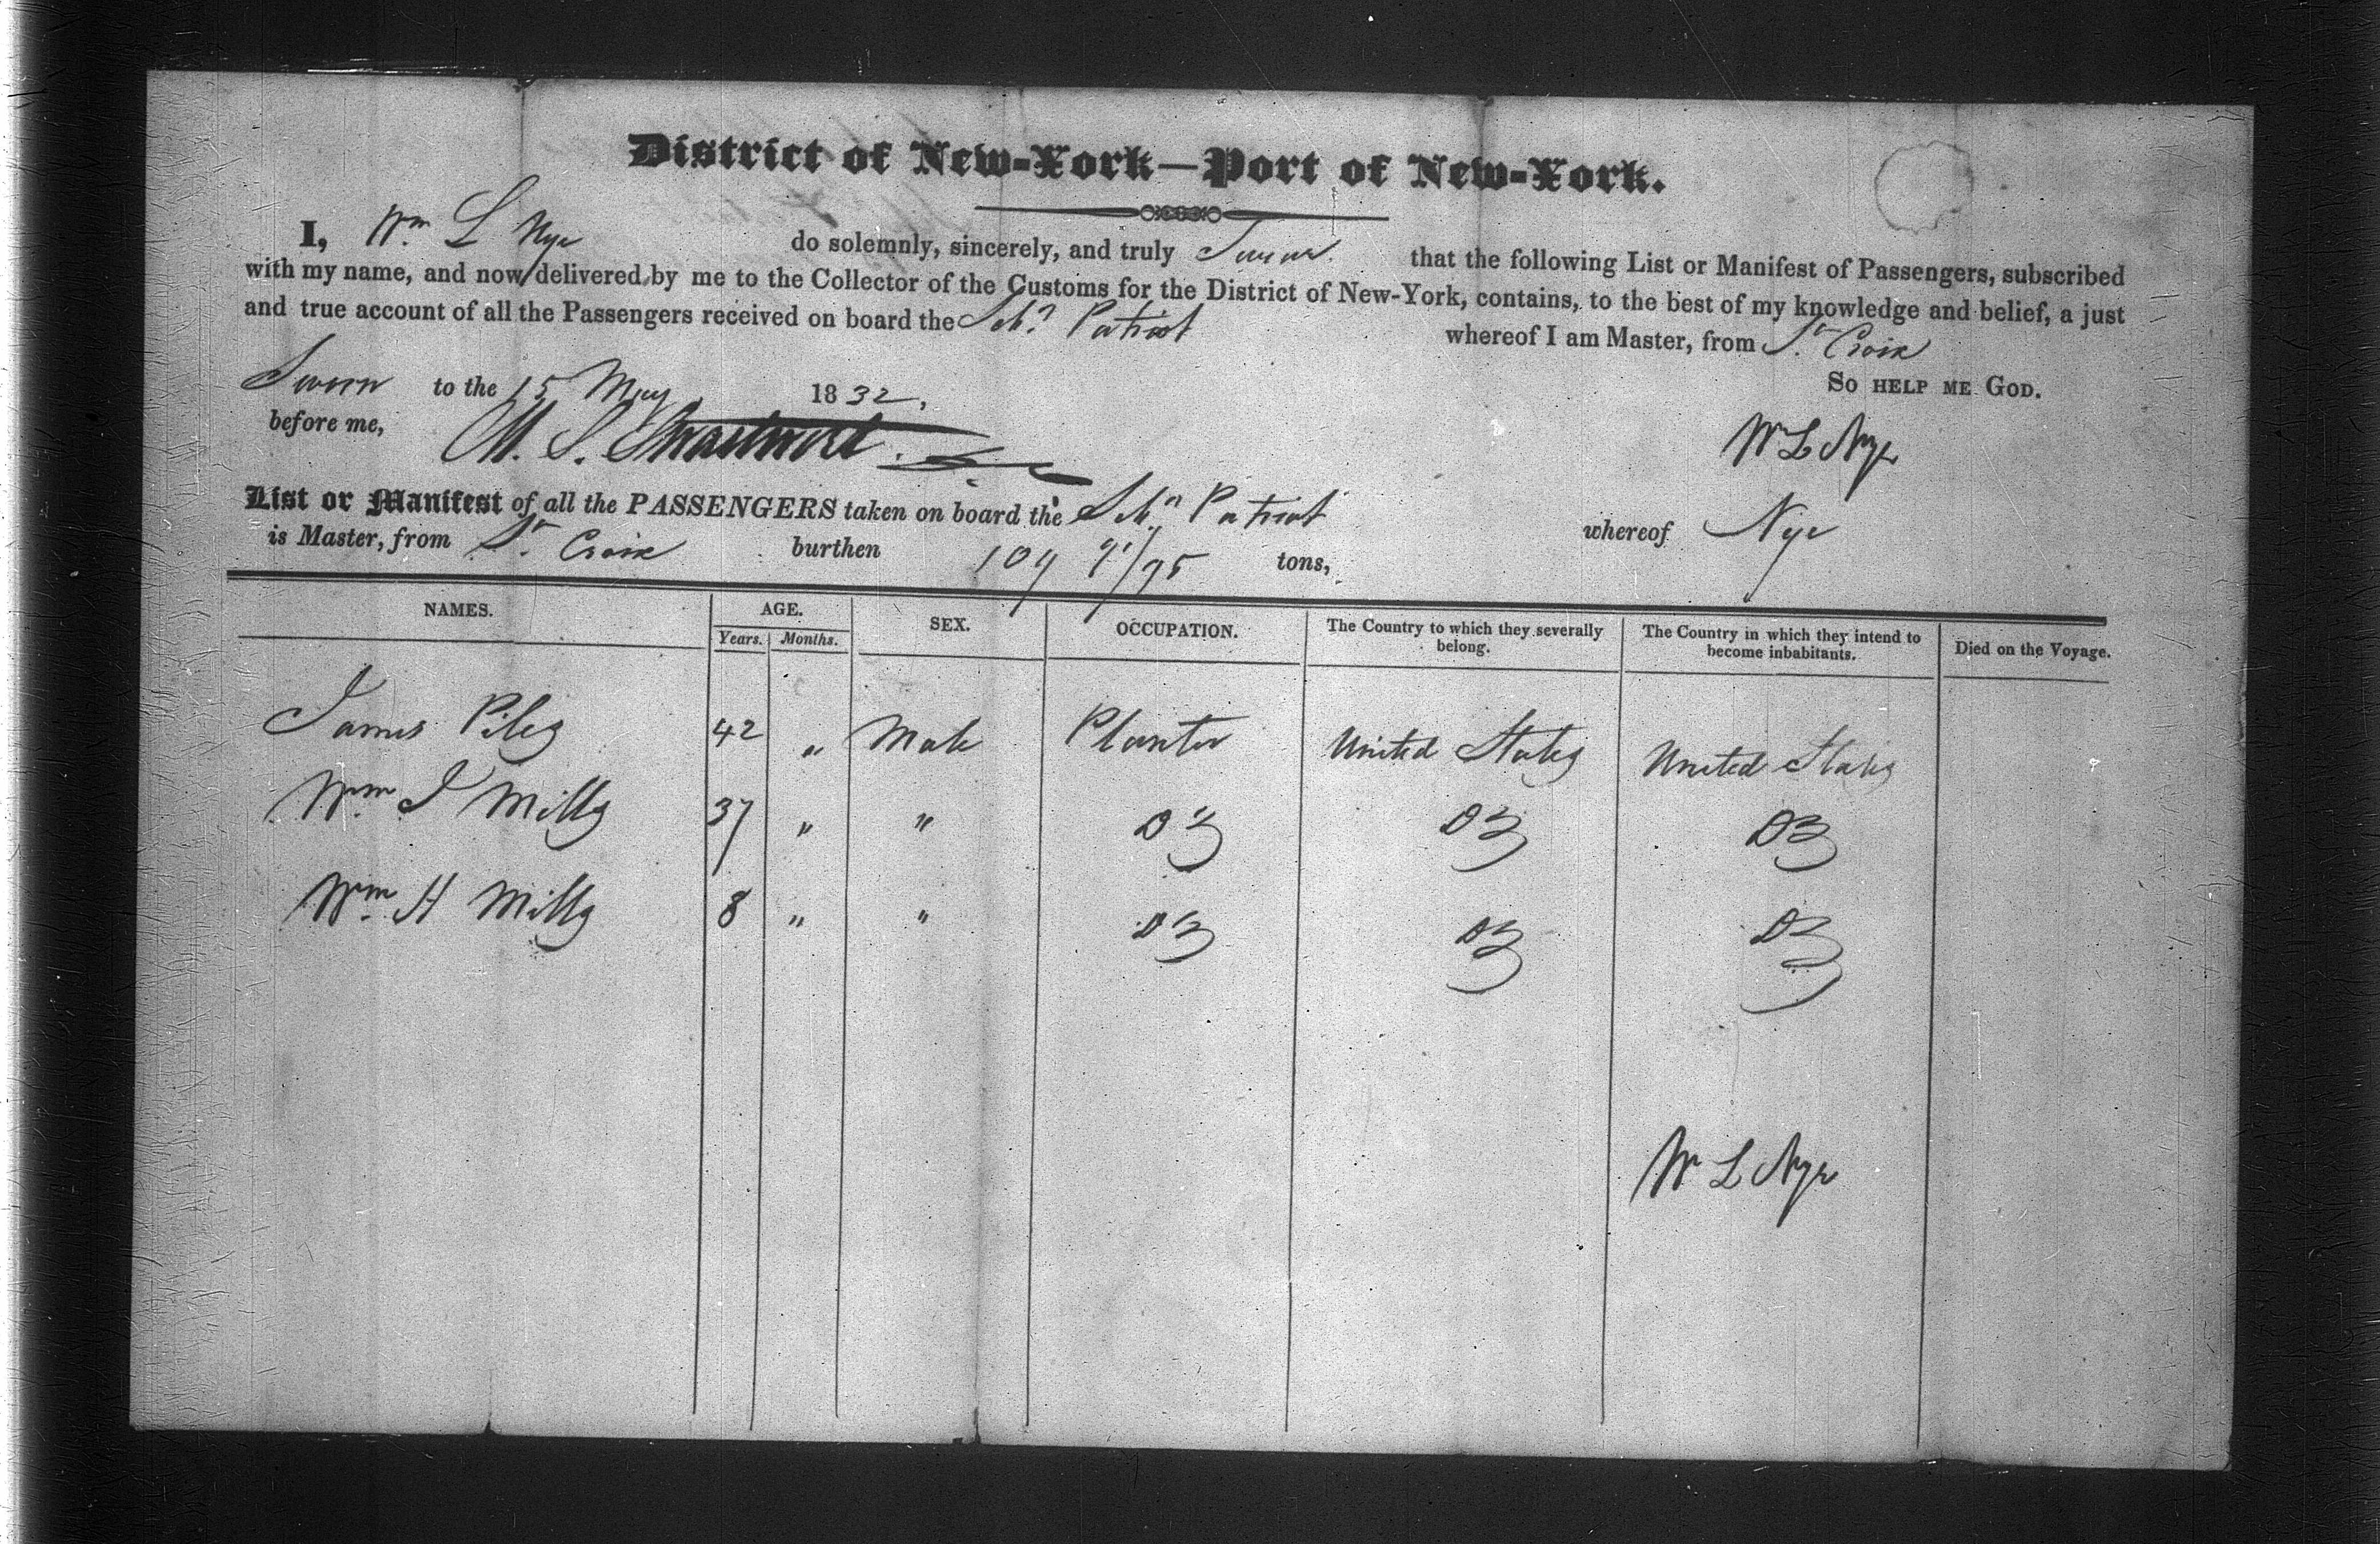 District of New-York—Port of New-York.
I, Wm L Nye do solemnly, sincerely, and truly Swear that the following List or Manifest of Passengers, subscribed
with my name, and now delivered by me to the Collector of the Customs for the District of New-York, contains, to the best of my knowledge and belief, a just
and true account of all the Passengers received on board the Schr Patriot whereof I am Master, from St Croix
Sworn to the 15 May 1832, So help me God.
before me, M. S. W L Nye
List or Manifest of all the PASSENGERS taken on board the Schr Patriot whereof Nye
is Master, from St Croix burthen 109 91/95 tons,
NAMES. AGE. SEX. OCCUPATION. The Country to which they severally belong. The Country in which they intend to become inhabitants. Died on the Voyage.
Years. Months.
James Piles 42 " Male Planter United States United States
Wm I Mills 37 " " Do Do Do
Wm H Mills 8 " " Do Do Do
W L Nye